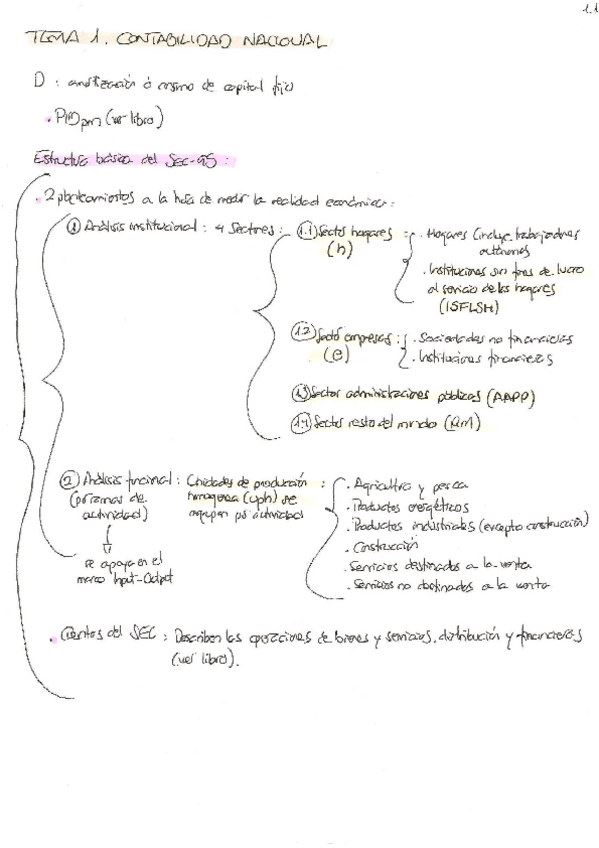 1.1
TEMA 1. CONTABILIDAD NACIONAL
D : amortización ó consumo de capital fijo
. PIDpm (ver libro)
Estructura básica del Sec-95 :
. 2 planteamientos a la hora de medir la realidad económica :
① Análisis institucional : 4 Sectores :
1.1) Sector hogares (h) :
. Hogares (incluye trabajadores autónomos
. Instituciones sin fines de lucro al servicio de los hogares (ISFLSH)
1.2) Sector empresas (e) :
. Sociedades no financieras
. Instituciones financieras
1.3) Sector administraciones públicas (AAPP)
1.4) Sector resto del mundo (RM)
② Análisis funcional :
(por ramas de actividad)
se apoya en el marco Input-Output
Unidades de producción homogénea (uph) se agrupan por actividad :
. Agricultura y pesca
. Productos energéticos
. Productos industriales (excepto construcción)
. Construcción
. Servicios destinados a la venta
. Servicios no destinados a la venta
. Cuentas del SEC : Describen las operaciones de bienes y servicios, distribución y financieras
(ver libro).